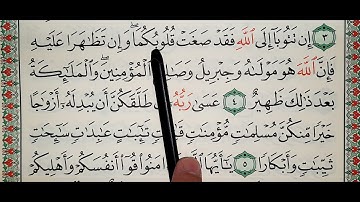 ٣ إِن تَتُوبَا إِلَى ٱللَّهِ فَقَدْ صَغَتْ قُلُوبُكُمَا ۖ وَإِن تَظَٰهَرَا عَلَيْهِ
فَإِنَّ ٱللَّهَ هُوَ مَوْلَىٰهُ وَجِبْرِيلُ وَصَٰلِحُ ٱلْمُؤْمِنِينَ ۖ وَٱلْمَلَٰٓئِكَةُ
بَعْدَ ذَٰلِكَ ظَهِيرٌ ٤ عَسَىٰ رَبُّهُۥٓ إِن طَلَّقَكُنَّ أَن يُبْدِلَهُۥٓ أَزْوَٰجًا
خَيْرًا مِّنكُنَّ مُسْلِمَٰتٍ مُّؤْمِنَٰتٍ تَٰٓئِبَٰتٍ عَٰبِدَٰتٍ سَٰٓئِحَٰتٍ
ثَيِّبَٰتٍ وَأَبْكَارًا ٥ يَٰٓأَيُّهَا قُوٓا۟ أَنفُسَكُمْ وَأَهْلِيكُمْ